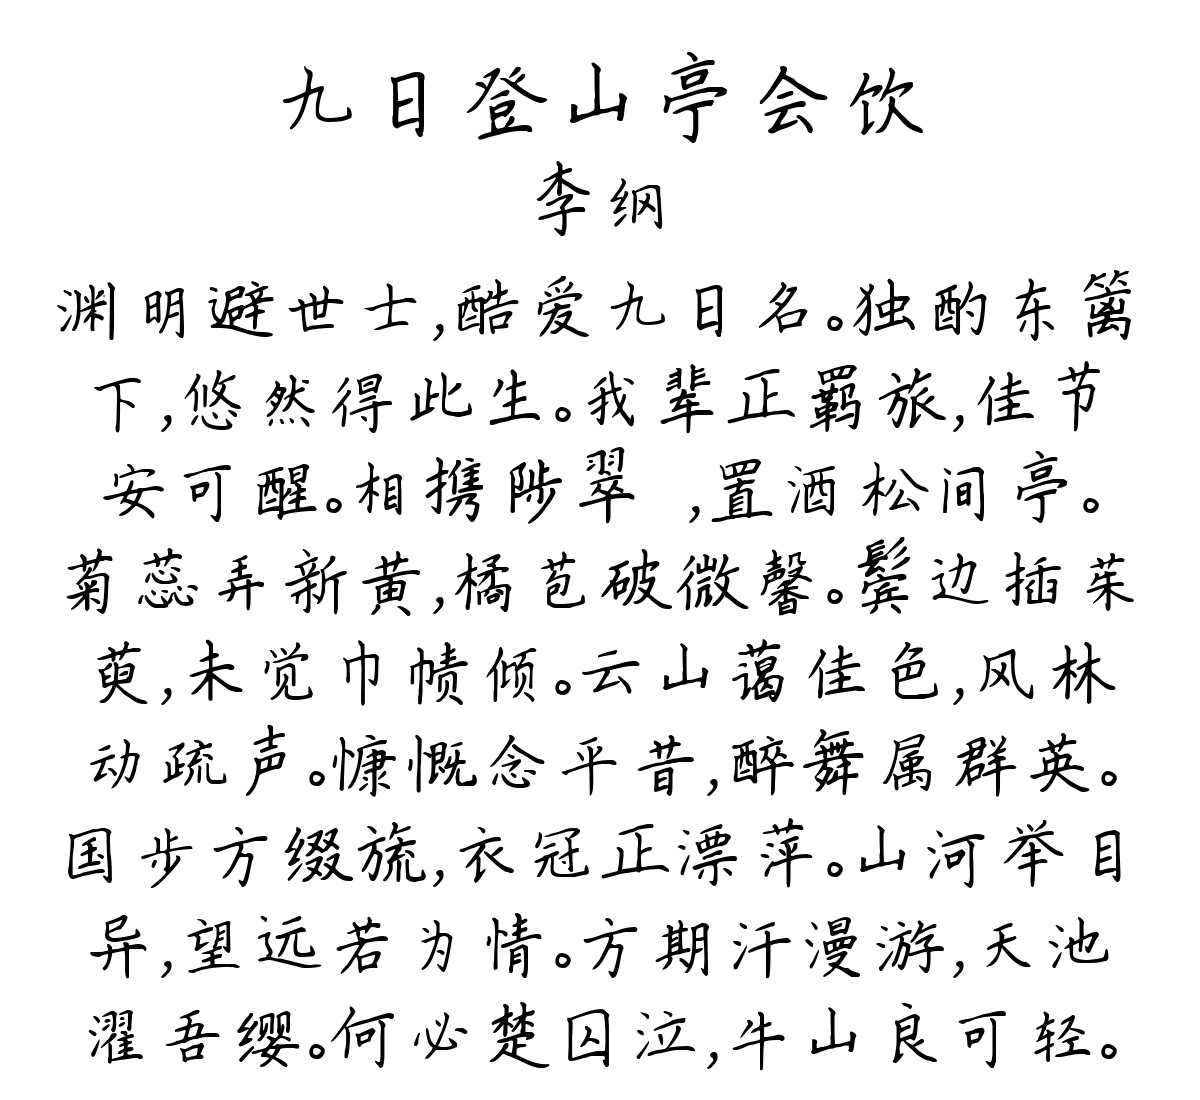 九日登山亭会饮
李纲
渊明避世士,酷爱九日名。独酌东篱
下,悠然得此生。我辈正羁旅,佳节
安可醒。相携陟翠 ,置酒松间亭。
菊蕊弄新黄,橘苞破微馨。鬓边插茱
萸,未觉巾帻倾。云山蔼佳色,风林
动疏声。慷慨念平昔,醉舞属群英。
国步方缀旒,衣冠正漂萍。山河举目
异,望远若为情。方期汗漫游,天池
濯吾缨。何必楚囚泣,牛山良可轻。